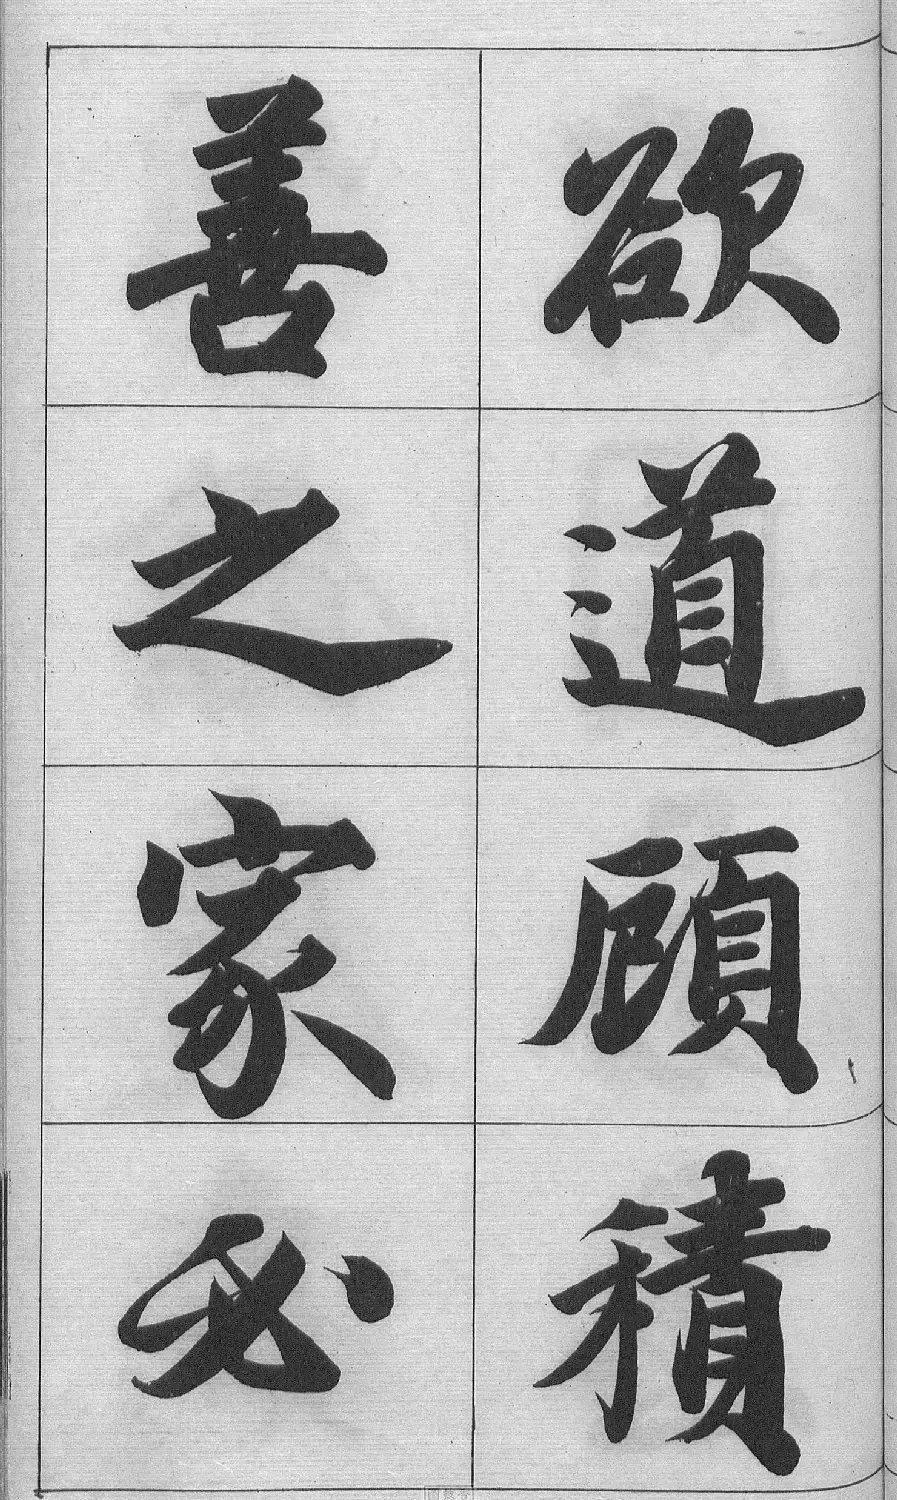 欲道顧積
善之家必